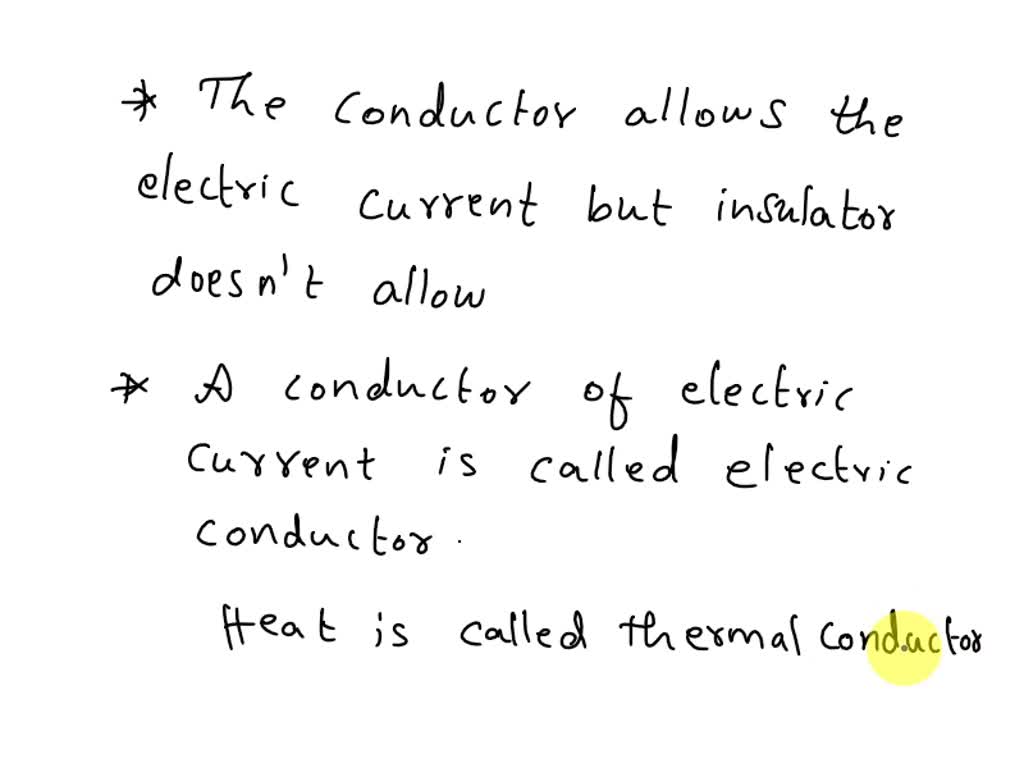 * The conductor allows the
electric current but insulator
doesn't allow
* A conductor of electric
current is called electric
conductor.
Heat is called thermal conductor